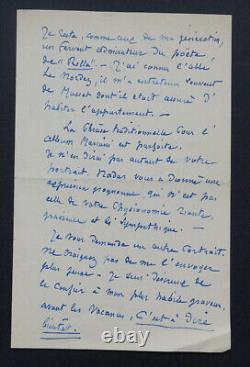 Je reste, comme ceux de ma génération,
un fervent admirateur du poète
de "Rolla". - J'ai connu l'abbé
Le Nordez, il m'a entretenu souvent
de Musset dont il était assuré d'
habiter l'appartement. -
La Thèse traditionnelle pour l'
album Mariani est parfaite.
Je n'en dirai pas autant de votre
portrait. Nadar vous a donné une
expression grognonne qui n'est pas
celle de votre physionomie
gracieuse et si sympathique. -
Je vous demande un autre portrait.
Ne craignez pas de me l'envoyer
plus jeune - Je suis désireux de
le confier à mon plus habile graveur
avant les Vacances, C'est à dire
bientôt.
© ebth.com